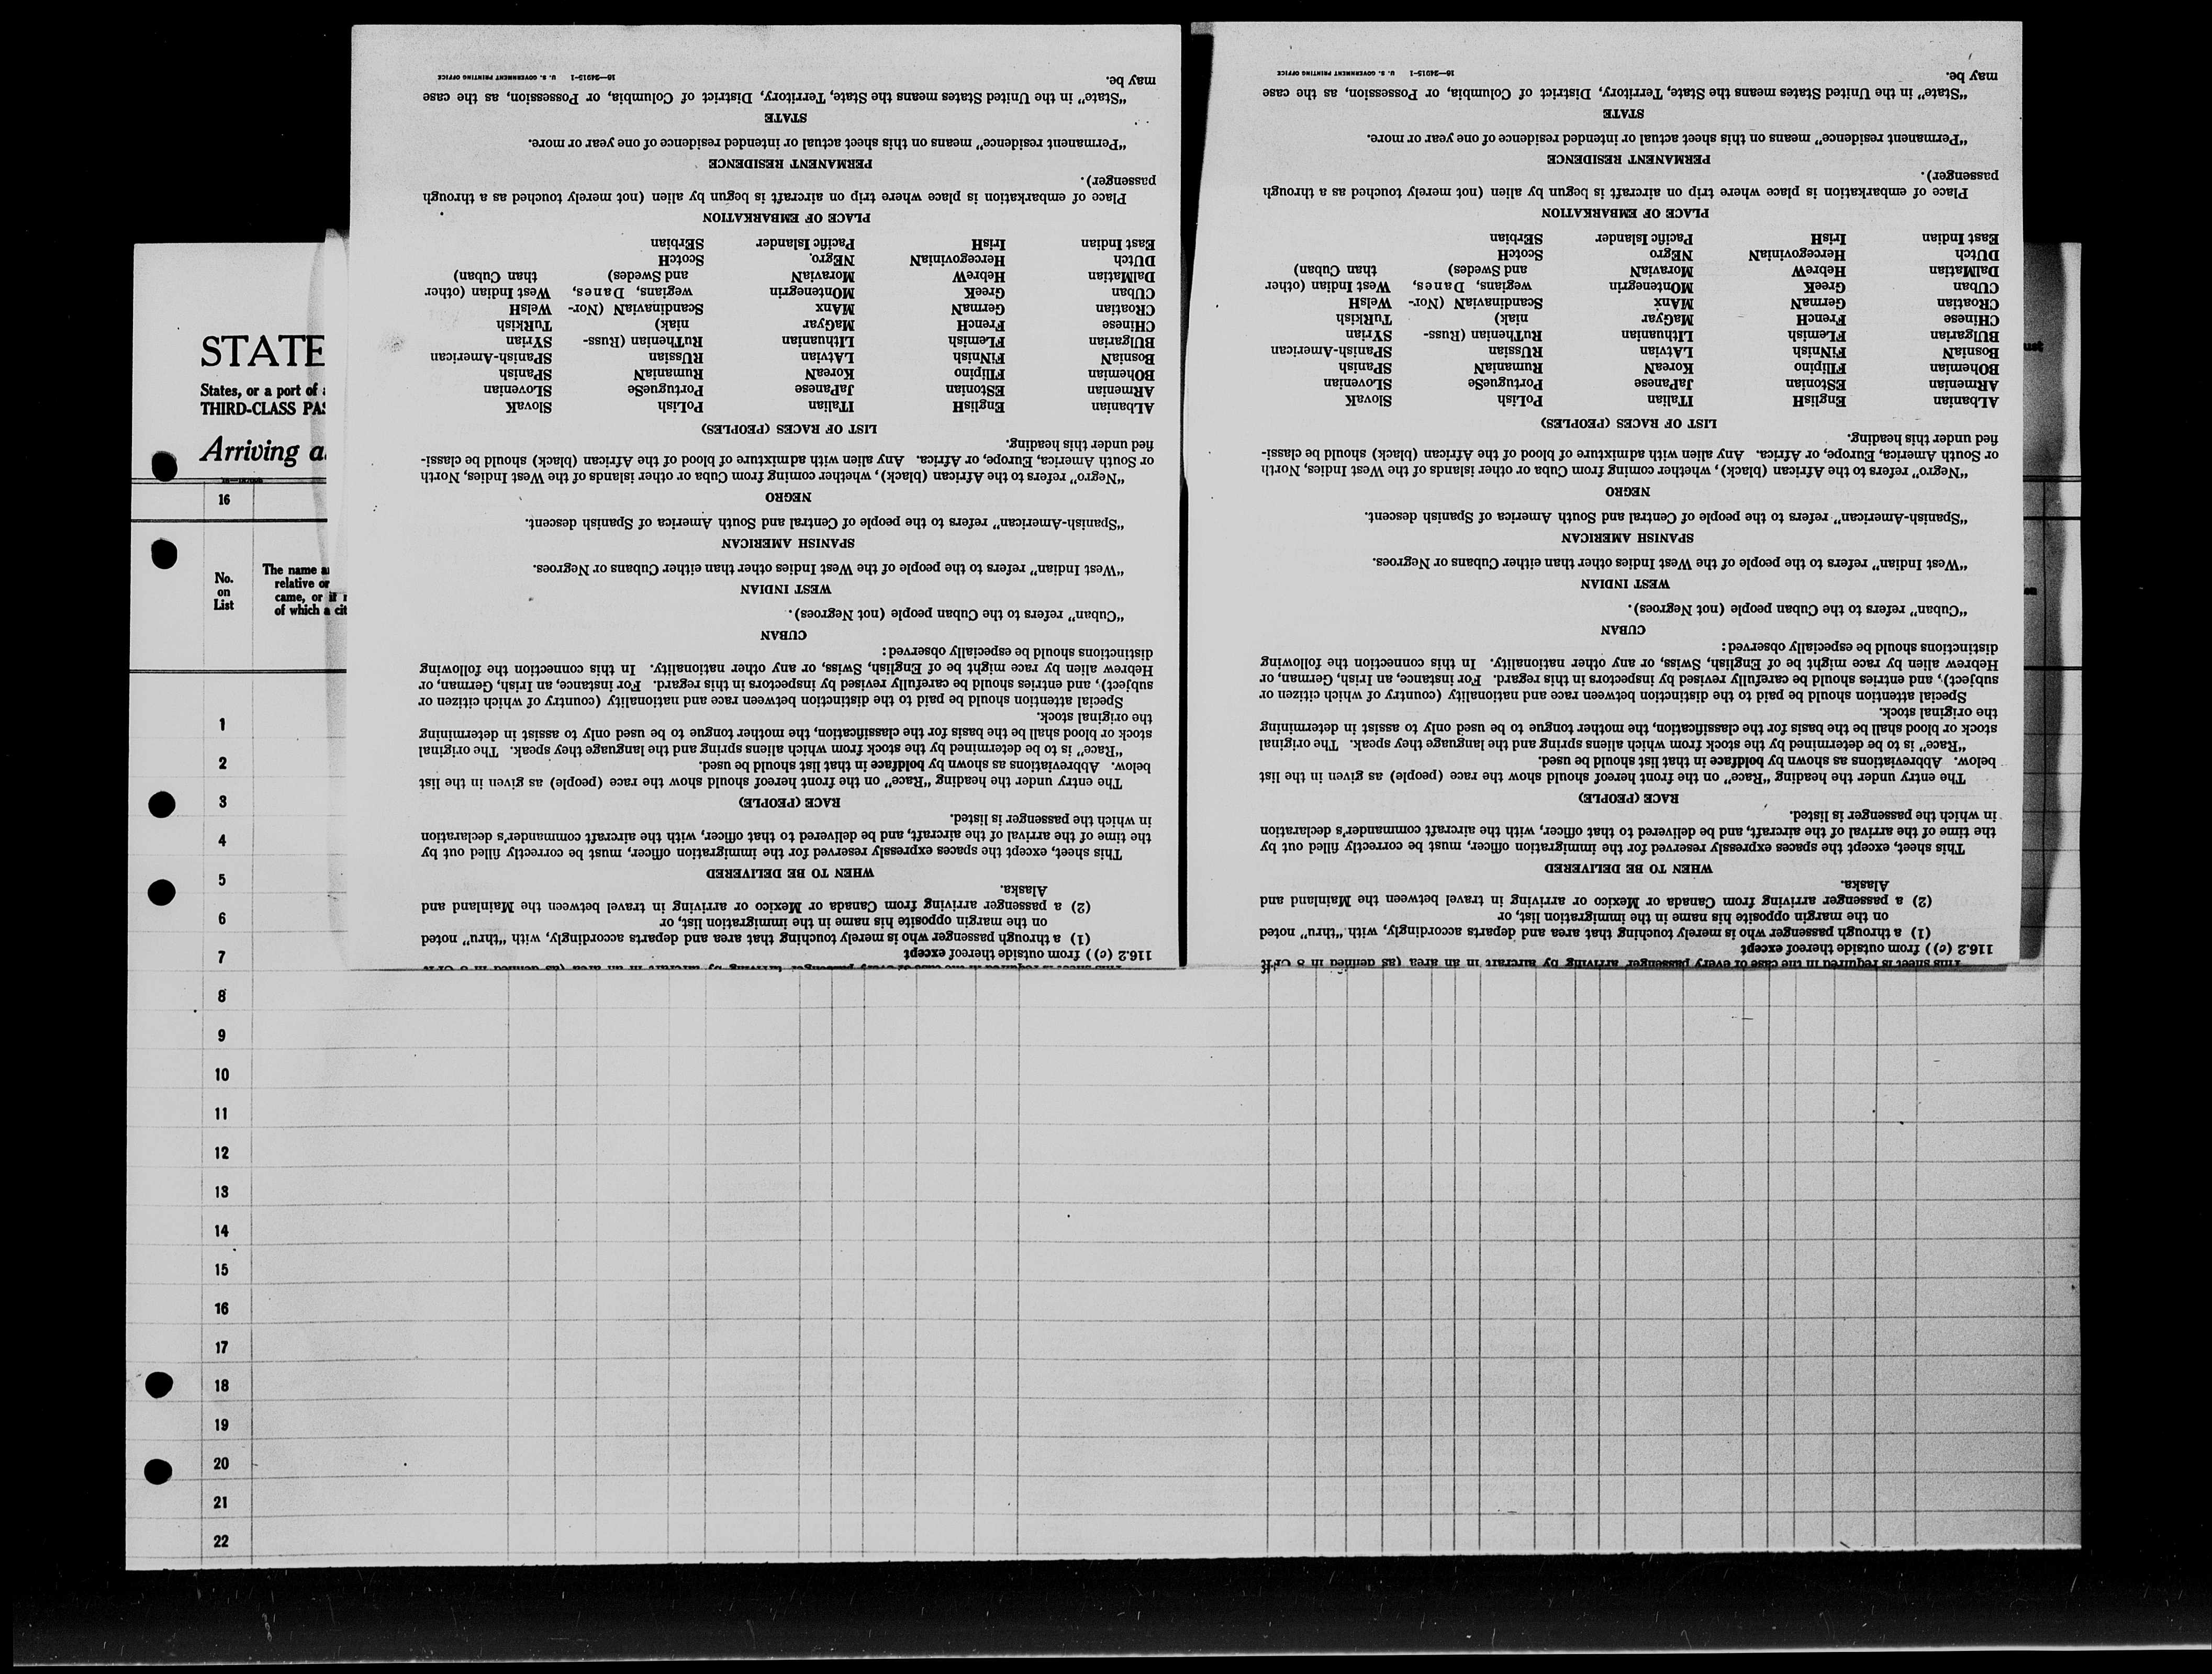 STATE
States, or a port of
THIRD-CLASS PAS
Arriving a
16
No.
on
List
The name a
relative or
came, or if
of which a cit
1
2
3
4
5
6
7
8
9
10
11
12
13
14
15
16
17
18
19
20
21
22
This sheet is required in the case of every passenger arriving by aircraft in an area (as defined in 8 CFR
116.2 (c)) from outside thereof except
(1) a through passenger who is merely touching that area and departs accordingly, with "thru" noted
on the margin opposite his name in the immigration list, or
(2) a passenger arriving from Canada or Mexico or arriving in travel between the Mainland and
Alaska.
WHEN TO BE DELIVERED
This sheet, except the spaces expressly reserved for the immigration officer, must be correctly filled out by
the time of the arrival of the aircraft, and be delivered to that officer, with the aircraft commander's declaration
in which the passenger is listed.
RACE (PEOPLE)
The entry under the heading "Race" on the front hereof should show the race (people) as given in the list
below. Abbreviations as shown by boldface in that list should be used.
"Race" is to be determined by the stock from which aliens spring and the language they speak. The original
stock or blood shall be the basis for the classification, the mother tongue to be used only to assist in determining
the original stock.
Special attention should be paid to the distinction between race and nationality (country of which citizen or
subject), and entries should be carefully revised by inspectors in this regard. For instance, an Irish, German, or
Hebrew alien by race might be of English, Swiss, or any other nationality. In this connection the following
distinctions should be especially observed:
CUBAN
"Cuban" refers to the Cuban people (not Negroes).
WEST INDIAN
"West Indian" refers to the people of the West Indies other than either Cubans or Negroes.
SPANISH AMERICAN
"Spanish-American" refers to the people of Central and South America of Spanish descent.
NEGRO
"Negro" refers to the African (black), whether coming from Cuba or other islands of the West Indies, North
or South America, Europe, or Africa. Any alien with admixture of blood of the African (black) should be classi-
fied under this heading.
LIST OF RACES (PEOPLES)
ALbanian EnglisH ITalian PoLish SlovaK
ARmenian EStonian JaPanese PortugueSe SLOvenian
BOhemian FIlipino KoreaN RumaniaN SPanish
BosniaN FiNNish LAtvian RUssian SPanish-American
BUlgarian FLemish LIthuanian RuThenian (Russ- SYrian
CHinese FrencH MaGyar niak) TuRkish
CRoatian GermaN MAnx ScandinaviaN (Nor- WelsH
CUban GreeK MOntenegrin wegians, Danes, West Indian (other
DalMatian HebreW MoraviaN and Swedes) than Cuban)
DUtch HercegoviniaN NEgro ScotcH
East Indian IrisH Pacific Islander SErbian
PLACE OF EMBARKATION
Place of embarkation is place where trip on aircraft is begun by alien (not merely touched as a through
passenger).
PERMANENT RESIDENCE
"Permanent residence" means on this sheet actual or intended residence of one year or more.
STATE
"State" in the United States means the State, Territory, District of Columbia, or Possession, as the case
may be.
16—24915-1 U. S. GOVERNMENT PRINTING OFFICE
This sheet is required in the case of every passenger arriving by aircraft in an area (as defined in 8 CFR
116.2 (c)) from outside thereof except
(1) a through passenger who is merely touching that area and departs accordingly, with "thru" noted
on the margin opposite his name in the immigration list, or
(2) a passenger arriving from Canada or Mexico or arriving in travel between the Mainland and
Alaska.
WHEN TO BE DELIVERED
This sheet, except the spaces expressly reserved for the immigration officer, must be correctly filled out by
the time of the arrival of the aircraft, and be delivered to that officer, with the aircraft commander's declaration
in which the passenger is listed.
RACE (PEOPLE)
The entry under the heading "Race" on the front hereof should show the race (people) as given in the list
below. Abbreviations as shown by boldface in that list should be used.
"Race" is to be determined by the stock from which aliens spring and the language they speak. The original
stock or blood shall be the basis for the classification, the mother tongue to be used only to assist in determining
the original stock.
Special attention should be paid to the distinction between race and nationality (country of which citizen or
subject), and entries should be carefully revised by inspectors in this regard. For instance, an Irish, German, or
Hebrew alien by race might be of English, Swiss, or any other nationality. In this connection the following
distinctions should be especially observed:
CUBAN
"Cuban" refers to the Cuban people (not Negroes).
WEST INDIAN
"West Indian" refers to the people of the West Indies other than either Cubans or Negroes.
SPANISH AMERICAN
"Spanish-American" refers to the people of Central and South America of Spanish descent.
NEGRO
"Negro" refers to the African (black), whether coming from Cuba or other islands of the West Indies, North
or South America, Europe, or Africa. Any alien with admixture of blood of the African (black) should be classi-
fied under this heading.
LIST OF RACES (PEOPLES)
ALbanian EnglisH ITalian PoLish SlovaK
ARmenian EStonian JaPanese PortugueSe SLOvenian
BOhemian FIlipino KoreaN RumaniaN SPanish
BosniaN FiNNish LAtvian RUssian SPanish-American
BUlgarian FLemish LIthuanian RuThenian (Russ- SYrian
CHinese FrencH MaGyar niak) TuRkish
CRoatian GermaN MAnx ScandinaviaN (Nor- WelsH
CUban GreeK MOntenegrin wegians, Danes, West Indian (other
DalMatian HebreW MoraviaN and Swedes) than Cuban)
DUtch HercegoviniaN NEgro ScotcH
East Indian IrisH Pacific Islander SErbian
PLACE OF EMBARKATION
Place of embarkation is place where trip on aircraft is begun by alien (not merely touched as a through
passenger).
PERMANENT RESIDENCE
"Permanent residence" means on this sheet actual or intended residence of one year or more.
STATE
"State" in the United States means the State, Territory, District of Columbia, or Possession, as the case
may be.
16—24915-1 U. S. GOVERNMENT PRINTING OFFICE